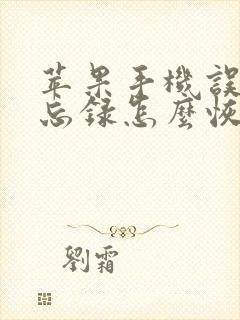 苹果手機誤
忘録怎麼恢
劉霜